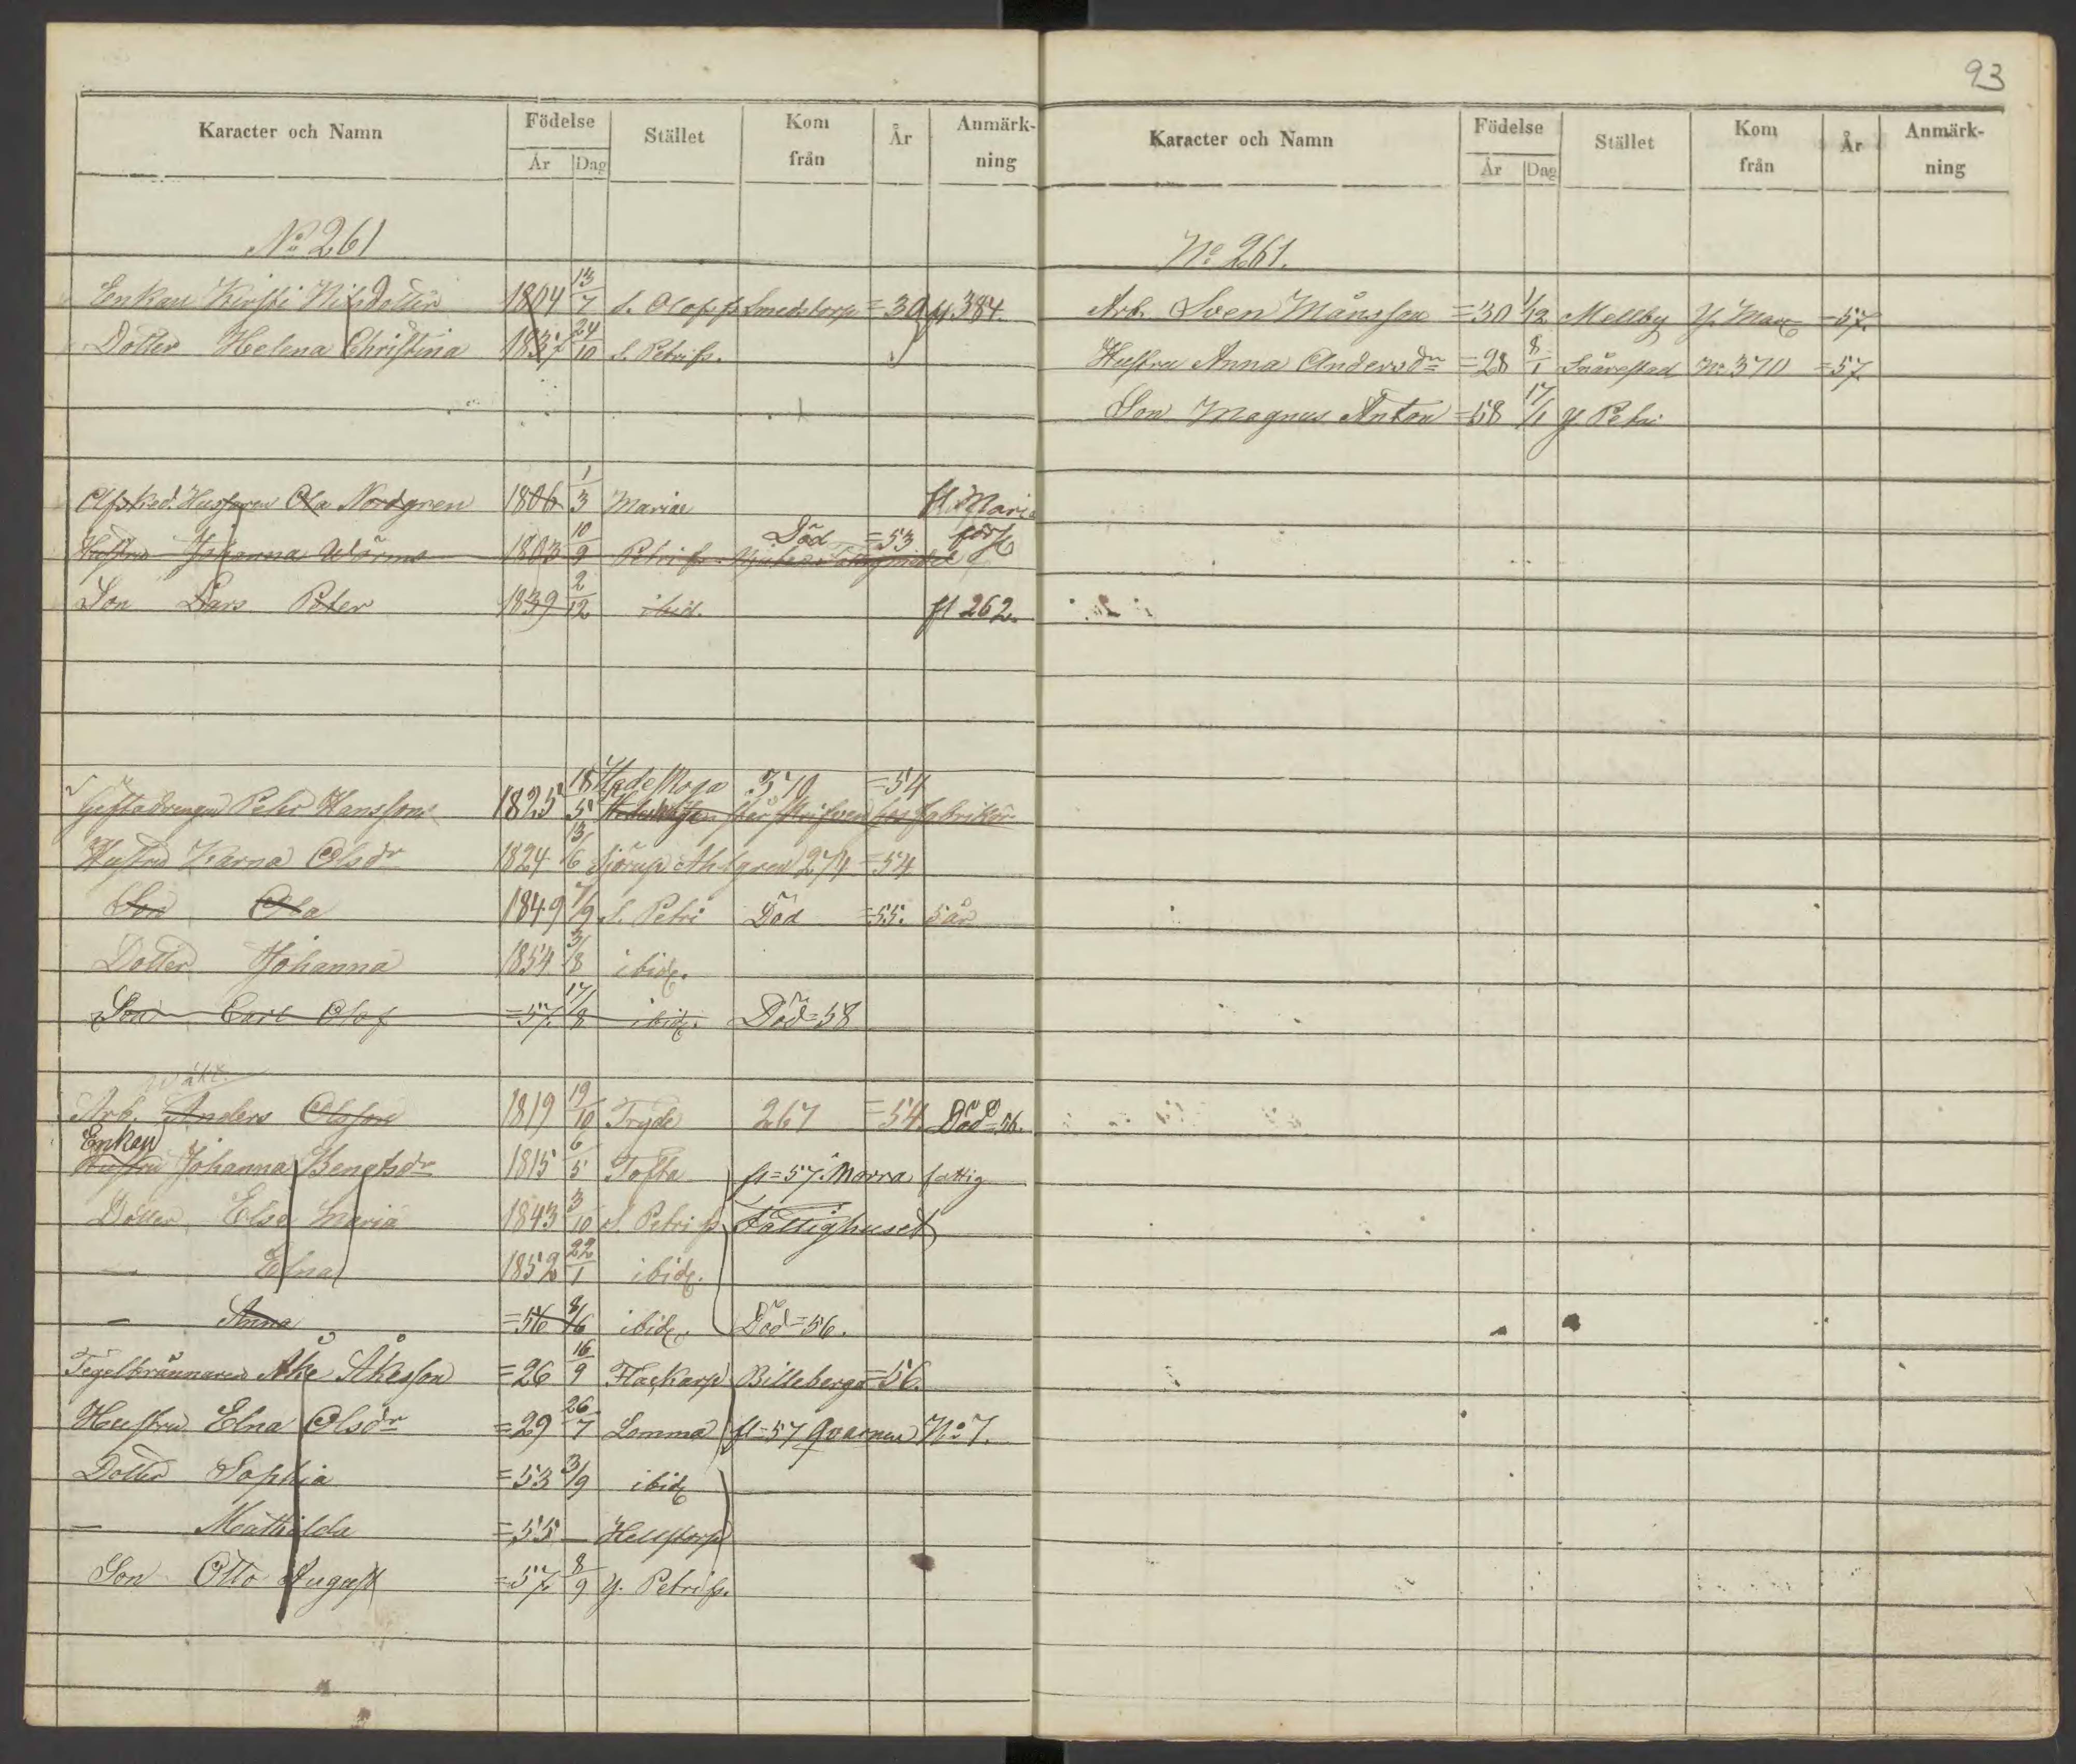 93
Karacter och Namn Födelse År Dag Stället Kom från År Anmärkning
No 261
Enkan Kirsti Nilsdotter 1804 13/7 S. Olofs fs Smedstorp =39 fl 384.
Dotter Helena Christina 1837 24/10 S. Petri fs.
Afsked. Husaren Ola Nordgren 1806 1/3 Mariae fl. Mariae förs
Hustru Johanna Wärma 1803 10/9 Petri fs. Död =53
Son Lars Peter 1839 2/12 ibid. fl 262.
Peter Hansson 1825 18/5 370 =54
Hustru Karna Olsdr 1824 13/6 Sjörup Ahlgren 274 =54
Son Ola 1849 7/9 S. Petri Död =55. 5 år
Dotter Johanna 1854 3/8 ibid.
Son Carl Olof =57. 17/8 ibid. Död =58
Arb. Anders Olsson 1819 19/10 Tryde 267 =54. Död =56.
Enkan
Hustru Johanna Bengtsdr 1815 6/5 Tofta fl =57. Norra fattig
Dotter Elsa Maria 1843 3/10 S. Petri fs Fattighuset
— Elna 1852 22/1 ibid.
— Anna =56 8/6 ibid. Död =56.
Tegelbrännaren Åke Åkesson =26 16/9 Flackarp Billeberga =56.
Hustru Elna Olsdr =29 26/7 Lomma fl =57 Qvarnen No 7.
Dotter Sophia =53 3/9 ibid
— Mathilda =55 — Hellstorp
Son Otto August =57. 8/9 Y. Petri fs.
Karacter och Namn Födelse År Dag Stället Kom från År Anmärkning
No 261.
Arb. Sven Månsson =30 1/12 Mellby Y. Mariae =57.
Hustru Anna Andersdr =28 8/1 Snårestad No 370 =57.
Son Magnus Anton =58 17/1 Y. Petri